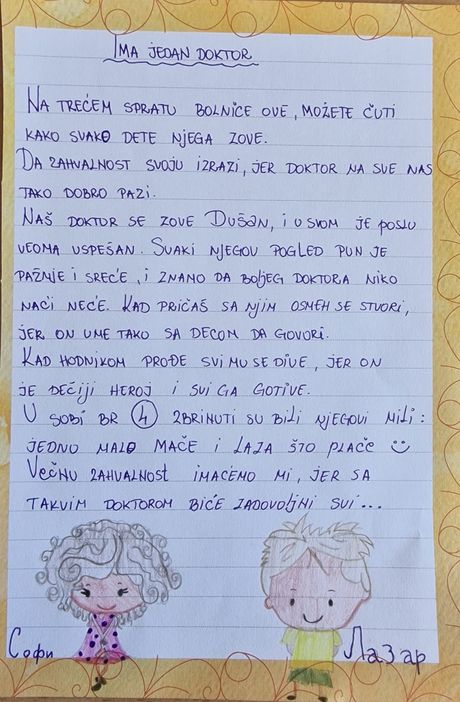 IMA JEDAN DOKTOR
NA TREĆEM SPRATU BOLNICE OVE, MOŽETE ČUTI
KAKO SVAKO DETE NJEGA ZOVE.
DA ZAHVALNOST SVOJU IZRAZI, JER DOKTOR NA SVE NAS
TAKO DOBRO PAZI.
NAŠ DOKTOR SE ZOVE DUŠAN, I U SVOM JE POSLU
VEOMA USPEŠAN. SVAKI NJEGOV POGLED PUN JE
PAŽNJE I SREĆE, I ZNAMO DA BOLJEG DOKTORA NIKO
NAĆI NEĆE. KAD PRIČAŠ SA NJIM OSMEH SE STVORI,
JER ON UME TAKO SA DECOM DA GOVORI.
KAD HODNIKOM PROĐE SVI MU SE DIVE, JER ON
JE DEČIJI HEROJ I SVI GA GOTIVE.
U SOBI BR 4 ZBRINUTI SU BILI NJEGOVI MILI:
JEDNO MALO MAČE I LAZA ŠTO PLAČE ☺
VEČNU ZAHVALNOST IMAĆEMO MI, JER SA
TAKVIM DOKTOROM BIĆE ZADOVOLJNI SVI...
Софи
Лазар